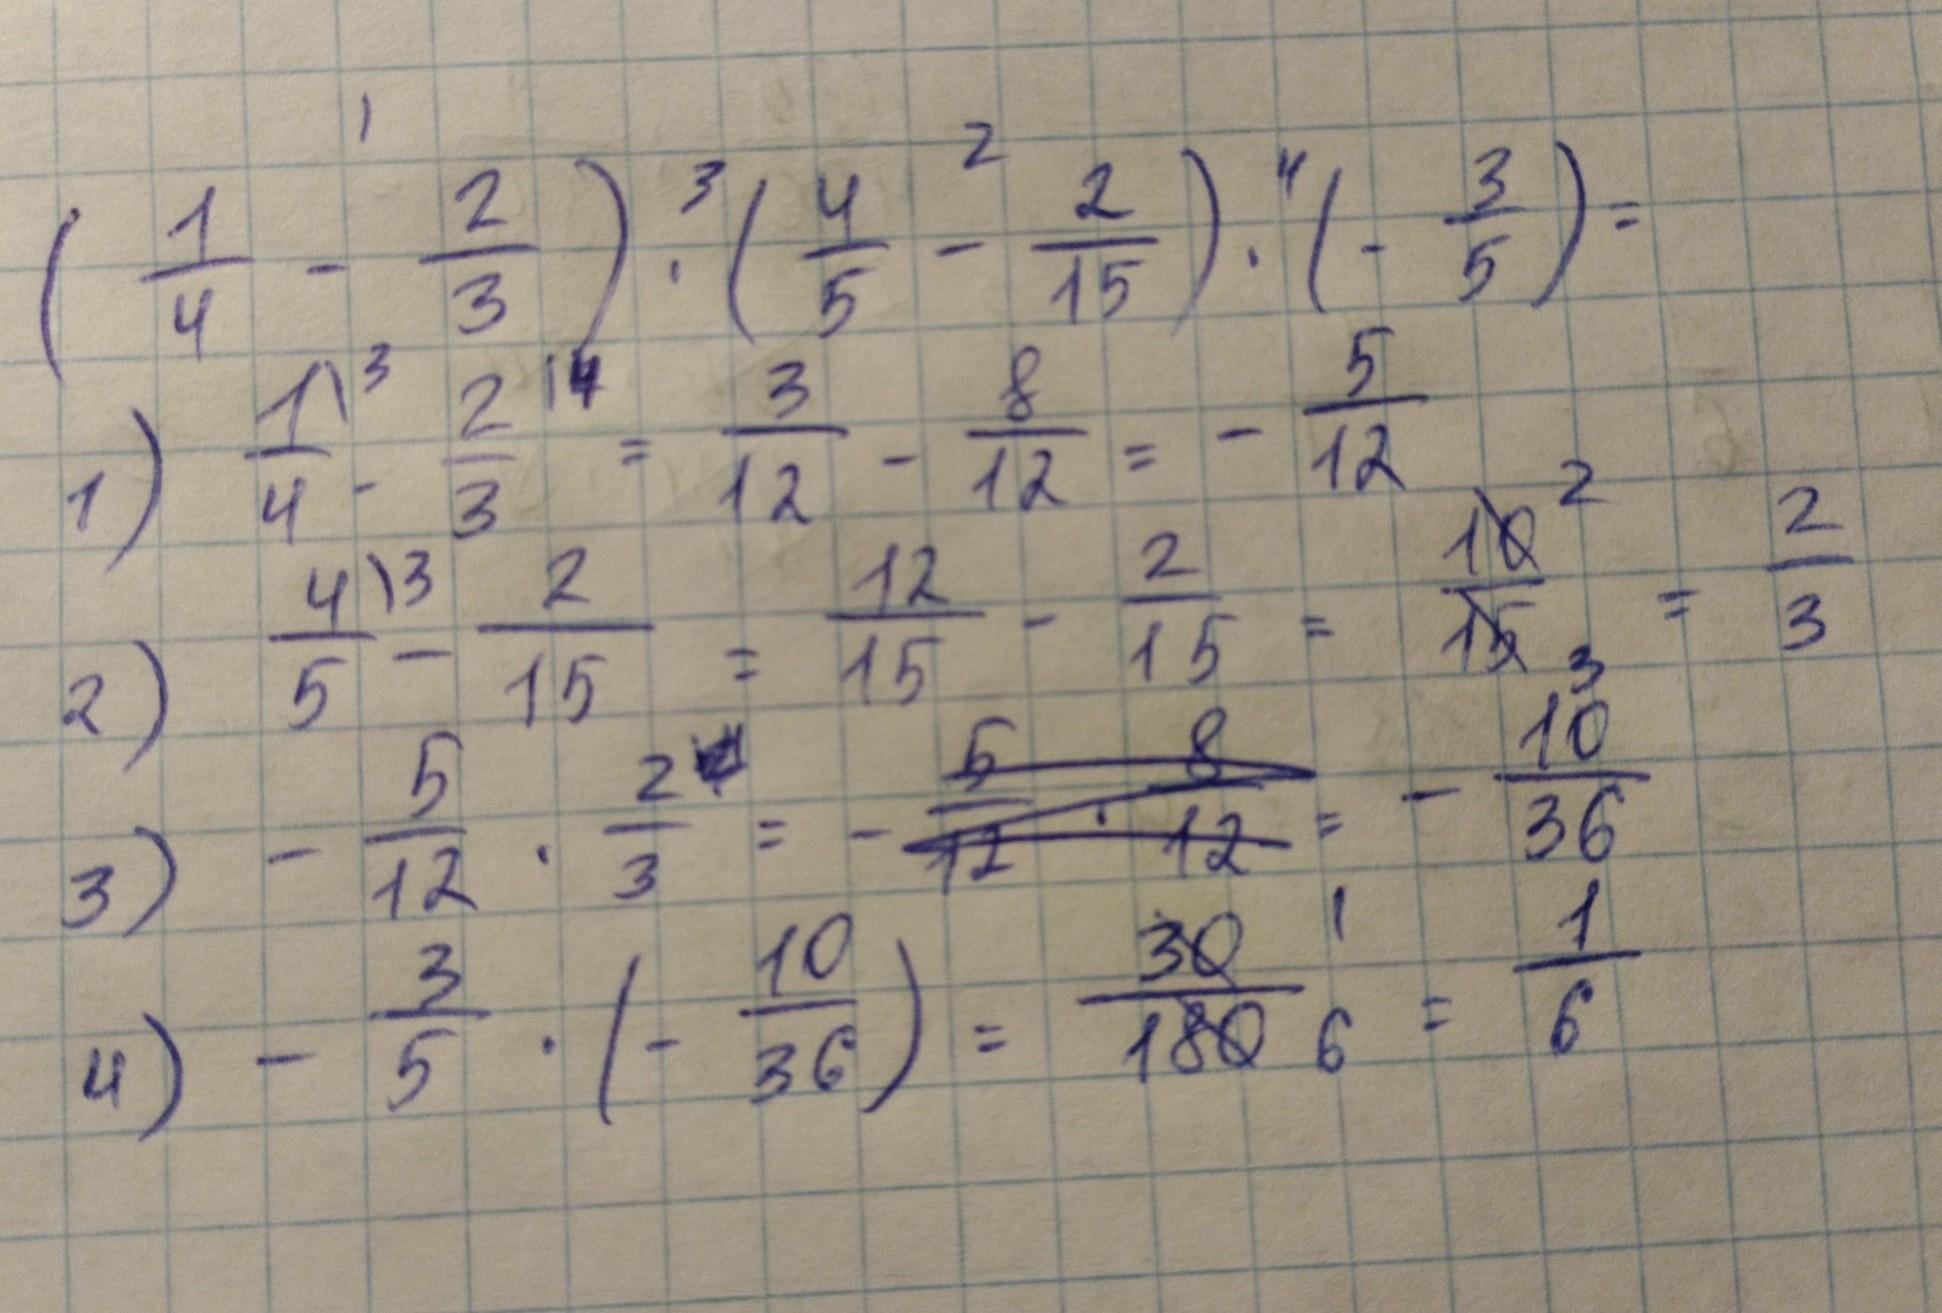 (1/4 -¹ 2/3) ·³ (4/5 -² 2/15) ·⁴ (- 3/5) =
1) 1/4\3 - 2/3\4 = 3/12 - 8/12 = - 5/12
2) 4/5\3 - 2/15 = 12/15 - 2/15 = 10/15 2/3 = 2/3
3) - 5/12 · 2/3 = - 5/12 · 8/12 = - 10/36
4) - 3/5 · (- 10/36) = 30/180 1/6 = 1/6